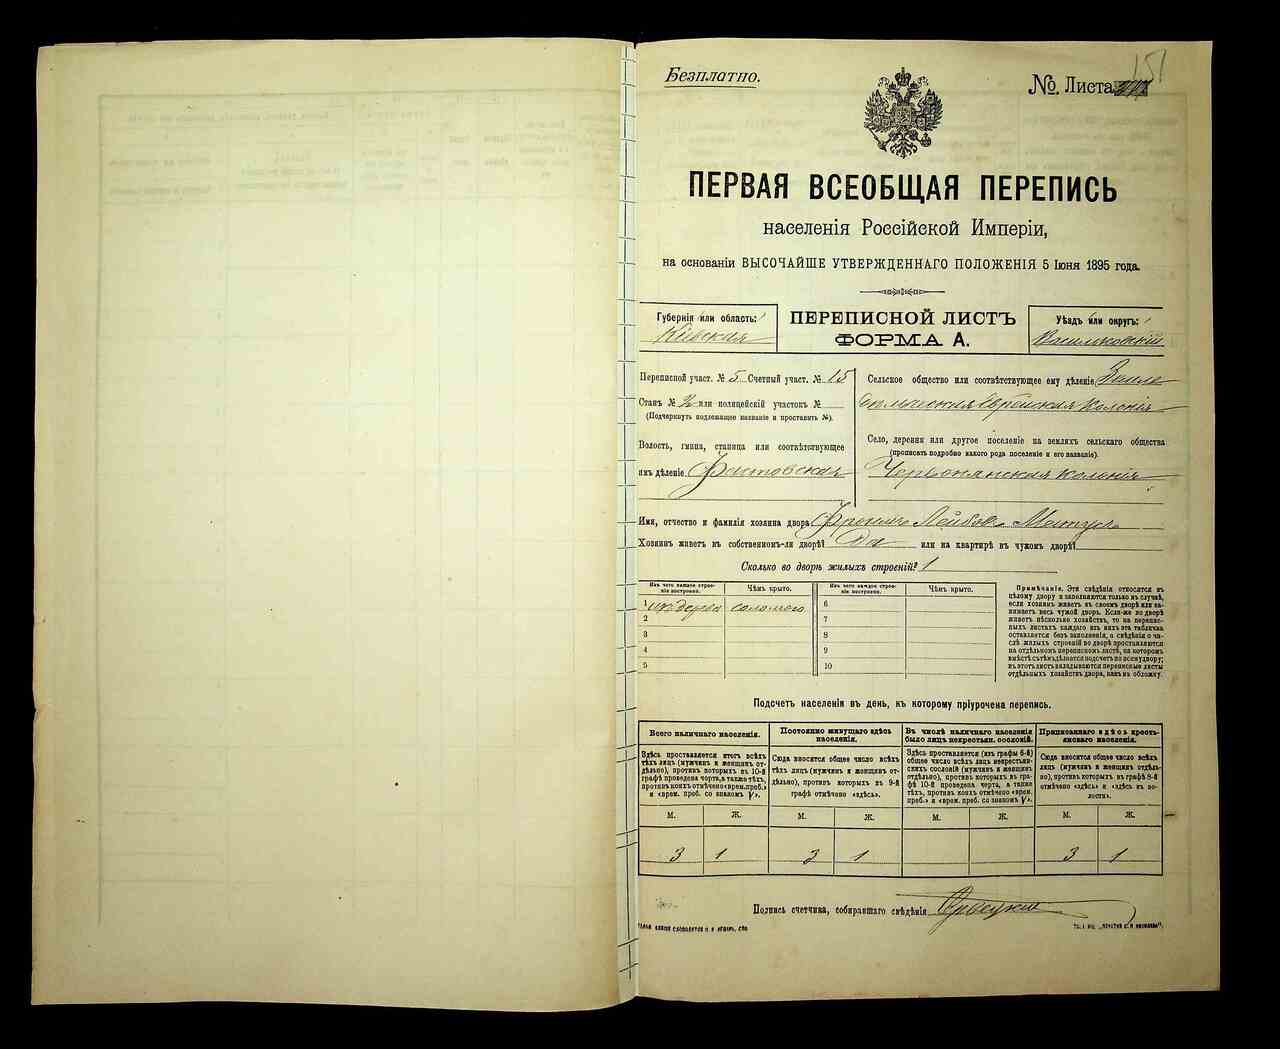 Безплатно.
№. Листа 151
ПЕРВАЯ ВСЕОБЩАЯ ПЕРЕПИСЬ
населенія Россійской Имперіи,
на основаніи ВЫСОЧАЙШЕ УТВЕРЖДЕННАГО ПОЛОЖЕНІЯ 5 Іюня 1895 года.
Губернія или область:
Кіевская
ПЕРЕПИСНОЙ ЛИСТЪ
ФОРМА А.
Уѣздъ или округъ:
Васильковскій
Переписной участ. № 5 Счетный участ. № 15
Станъ № 2 или полицейскій участокъ №
(Подчеркнуть подлежащее названіе и проставить №).
Волость, гмина, станица или соотвѣтствующее
имъ дѣленіе Фастовская
Сельское общество или соотвѣтствующее ему дѣленіе Земле
дѣльческая Еврейская Колонія
Село, деревня или другое поселеніе на земляхъ сельскаго общества
(прописать подробно какого рода поселеніе и его названіе).
Червонянская колонія
Имя, отчество и фамилія хозяина двора Фроимъ Лейбов. Матусъ
Хозяинъ живетъ въ собственном-ли дворѣ? Да или на квартирѣ въ чужомъ дворѣ?
Сколько во дворѣ жилыхъ строеній? 1
Изъ чего каждое строе-
ніе построено.
Чѣмъ крыто.
Изъ чего каждое строе-
ніе построено.
Чѣмъ крыто.
1 изъ дерева соломою 6
2 7
3 8
4 9
5 10
Примѣчаніе. Эти свѣдѣнія относятся къ
цѣлому двору и заполняются только въ случаѣ,
если хозяинъ живетъ въ своемъ дворѣ или за-
нимаетъ весь чужой дворъ. Если-же во дворѣ
живетъ нѣсколько хозяйствъ, то на перепис-
ныхъ листахъ каждаго изъ нихъ эта табличка
оставляется безъ заполненія, а свѣдѣнія о чи-
слѣ жилыхъ строеній во дворѣ проставляются
на отдѣльномъ переписномъ листѣ, на которомъ
вмѣстѣ съ тѣмъ дѣлается подсчетъ по всему двору;
въ этотъ листъ вкладываются переписные листы
отдѣльныхъ хозяйствъ двора, какъ въ обложку.
Подсчетъ населенія въ день, къ которому пріурочена перепись.
Всего наличнаго населенія.
Здѣсь проставляется итогъ всѣхъ
тѣхъ лицъ (мужчинъ и женщинъ от-
дѣльно), противъ которыхъ въ 10-й
графѣ проведена черта, а также тѣхъ,
противъ коихъ отмѣчено «врем. преб.»
и «врем. преб. со знакомъ V».
Постоянно живущаго здѣсь
населенія.
Сюда вносится общее число всѣхъ
тѣхъ лицъ (мужчинъ и женщинъ от-
дѣльно), противъ которыхъ въ 9-й
графѣ отмѣчено «здѣсь».
Въ числѣ наличнаго населенія
было лицъ некрестьян. сословій.
Здѣсь проставляется (изъ графы 6-й)
общее число всѣхъ лицъ некрестьян-
скихъ сословій (мужчинъ и женщинъ
отдѣльно), противъ которыхъ въ гра-
фѣ 10-й проведена черта, а также
тѣхъ, противъ коихъ отмѣчено «врем.
преб.» и «врем. преб. со знакомъ V».
Приписаннаго здѣсь кресть-
янскаго населенія.
Сюда вносится общее число всѣхъ
лицъ (мужчинъ и женщинъ отдѣль-
но), противъ которыхъ въ графѣ 8-й
отмѣчено «здѣсь» и «здѣсь въ во-
лости».
М. Ж. М. Ж. М. Ж. М. Ж.
3 1 3 1 3 1
Подпись счетчика, собиравшаго свѣдѣнія